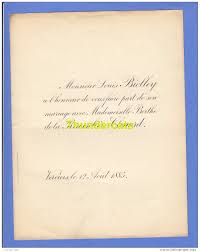 Monsieur Louis Biolley
a l'honneur de vous faire part de son
mariage avec Mademoiselle Berthe
de la
Verviers, le 12 Août 1885.